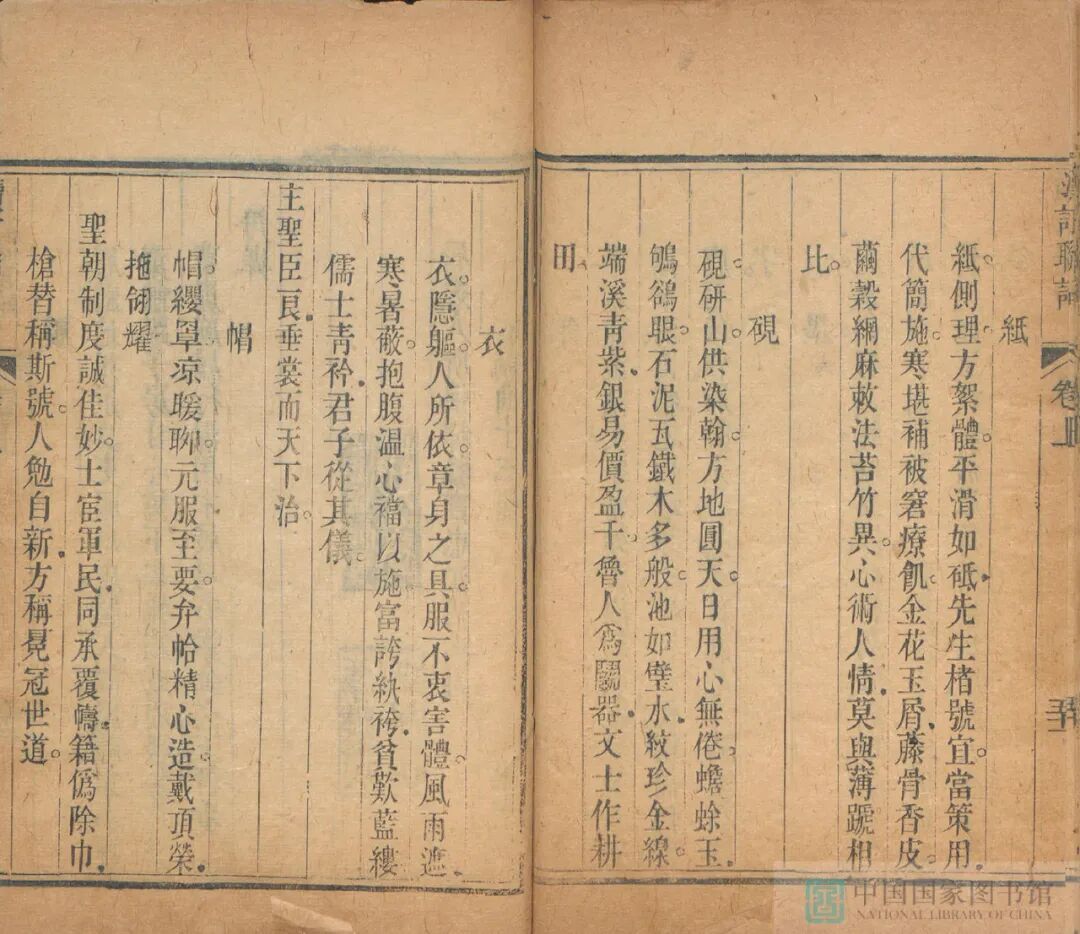 紙
紙側理方絮體平滑如砥先生楮號宜當策用
代簡施寒堪補被窘療飢金花玉屑藤骨香皮
繭縠網麻敕法苔竹異心術人情莫與薄蹏相
比
硯
硯研山供染翰方地圓天日用心無倦蟾蜍玉
鴝鵒眼石泥瓦鐵木多般池如璧水紋珍金線
端溪青紫銀易價盈千魯人為闕器文士作耕
田
衣
衣隱軀人所依章身之具服不衷害體風雨遮
寒暑蔽抱腹溫心襠以施富誇紈袴貧歎藍縷
儒士青衿君子從其儀
主聖臣良垂裳而天下治
帽
帽纓罩凉暖聊元服至要弁帢精心造戴頂榮
拖翎耀
聖朝制度誠佳妙士宦軍民同承覆幬籍僞除巾
槍替稱斯號人勉自新方稱冕冠世道
卷上
中国国家图书馆
NATIONAL LIBRARY OF CHINA